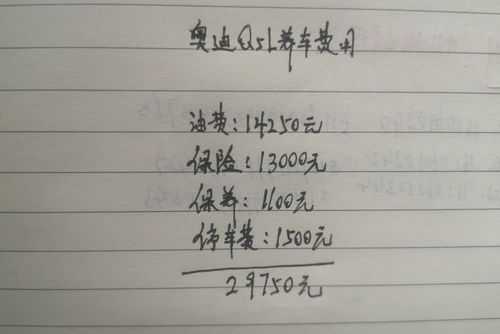 奥迪Q5L养车费用
油费:14250元
保险:13000元
保养:1100元
停车费:1500元
29750元